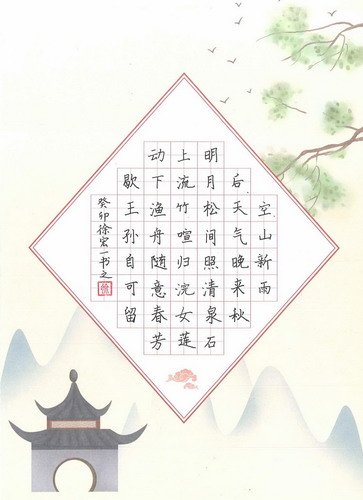 空山新雨
后天气晚来秋
明月松间照清泉石
上流竹喧归浣女莲
动下渔舟随意春芳
歇王孙自可留
癸卯徐宏一书之